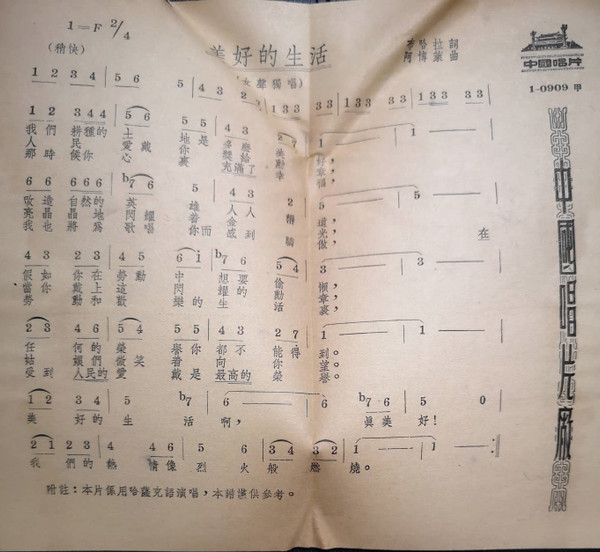 1=F 2/4
(稍快)
美好的生活
(女聲獨唱)
布哈拉 詞
阿傅萊 曲
中國唱片
1-0909 甲
中國唱片廠
1 2 3 4 | 5 6 5 | 4 3 2 1 | 3 3 | 1 3 3 3 3 | 1 3 3 3 3 |
1 2 3·4 4 | 5 (6) 5 | 4 3 2 7 | 1 — | 1 — |
我們耕種的土地是多麼美好,
人民愛戴你獎給了勳章,
那時候你心裏充滿了幸福,
6 6 6 6 | b7 6 5 | 4 3 2 | 5 — | 5 — |
改造自然的英雄人人讚道,
亮晶晶地閃耀着金
我也將為歌唱你而感到驕傲,
4 3 2 3 | 5 4 6 1 | b7 6 5 4 | 3 — | 3 — |
假如你在勞動中想要偷懶,
當你戴上這閃耀的勳章,
勞動和歡樂的生活裏,
2 3 4 6 | 5 4 5 5 | 4 3 2 7 | 1 — | 1 — |
任何的榮譽你都不能得到。
姑娘們微笑着向你望。
愛到人民的愛戴是最高的榮譽。
1 2 3 4 | 5 b7 | 6 — | 6 b7·6 | 5 0 |
美好的生活啊, 眞美好!
2 1 2 3 | 4 6 5 6 | 3 4 3 2 | 1 — | 1 — :|
我們的熱情像烈火般燃燒。
附註:本片係用哈薩克語演唱,本譜僅供參考。